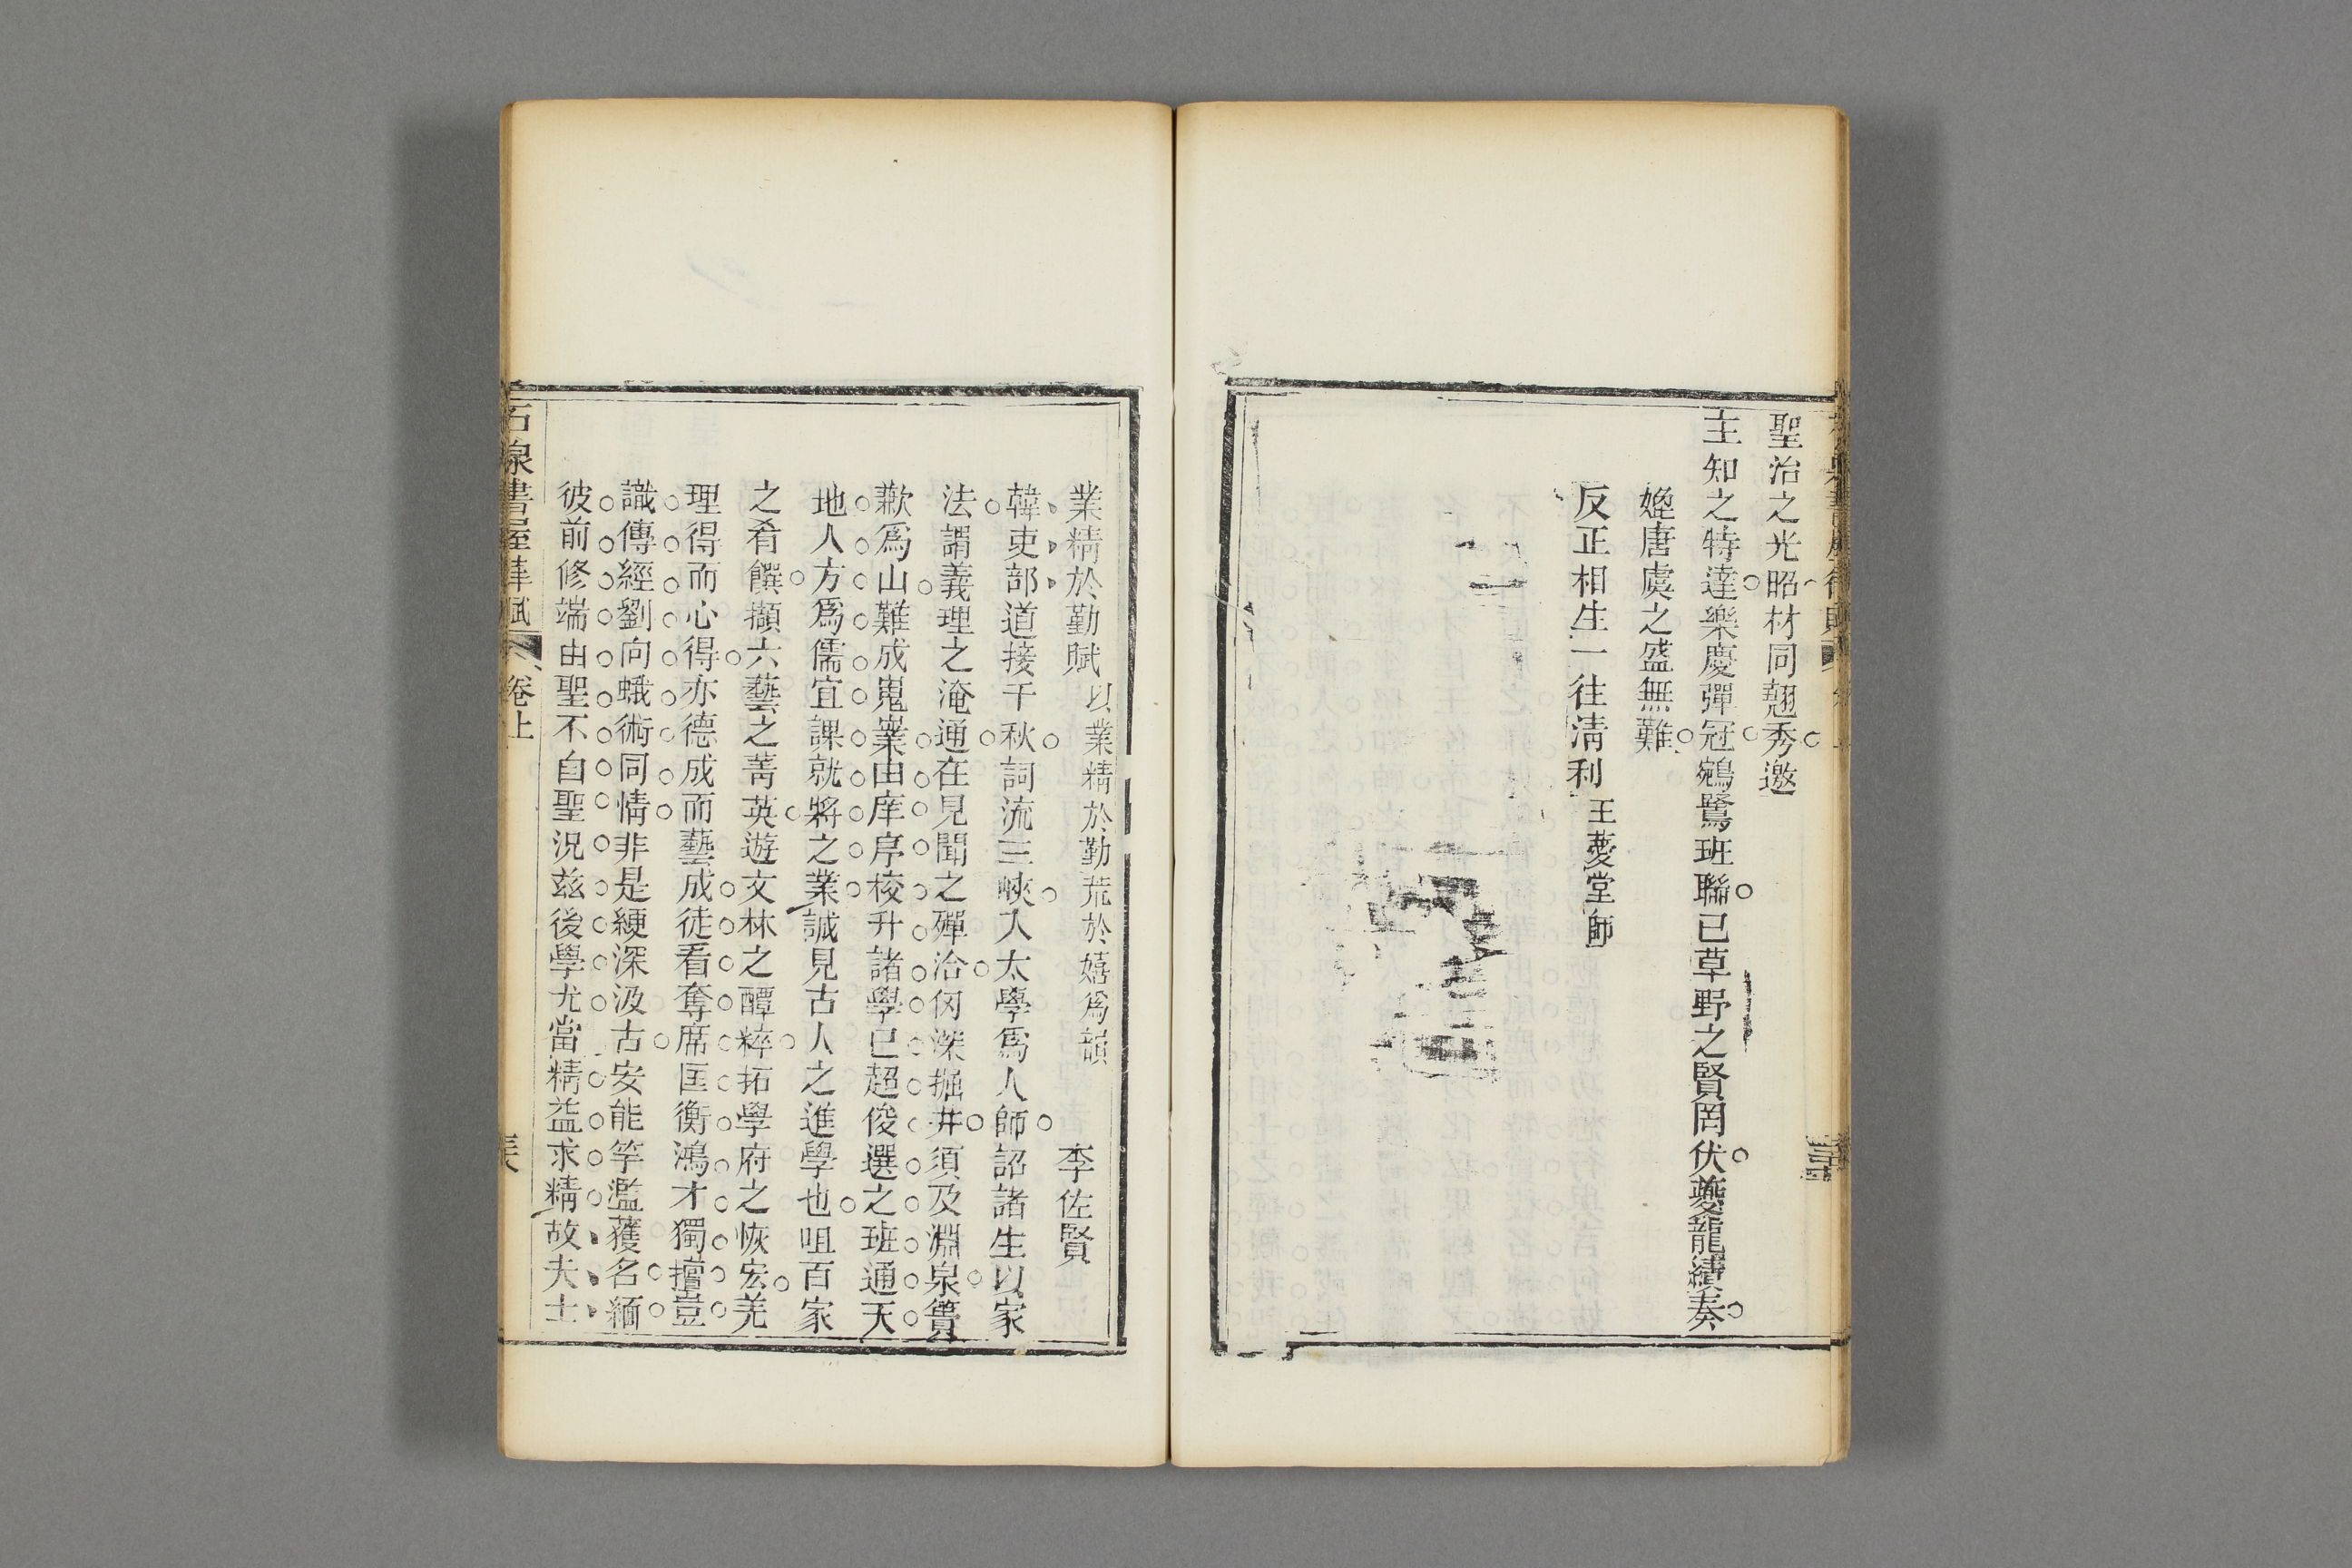 聖治之光昭材同翹秀邀
主知之特達樂慶彈冠鵷鷺班聯已草野之賢罔伏夔龍續奏
媲唐虞之盛無難
反正相生一往清利 王菱堂師
業精於勤賦 以業精於勤荒於嬉爲韻 李佐賢
韓吏部道接千秋詞流三峽入太學爲人師詔諸生以家
法謂義理之淹通在見聞之殫洽汲深掘井須及淵泉簣
歉爲山難成嵬嶪由庠序校升諸學已超俊選之班通天
地人方爲儒宜課就將之業誠見古人之進學也咀百家
之肴饌擷六藝之菁英遊文林之醰粹拓學府之恢宏羌
理得而心得亦德成而藝成徒看奪席匡衡鴻才獨擅豈
識傳經劉向蛾術同情非是綆深汲古安能竽濫獲名緬
彼前修端由聖不自聖況茲後學尤當精益求精故夫士
石泉書屋律賦 卷上